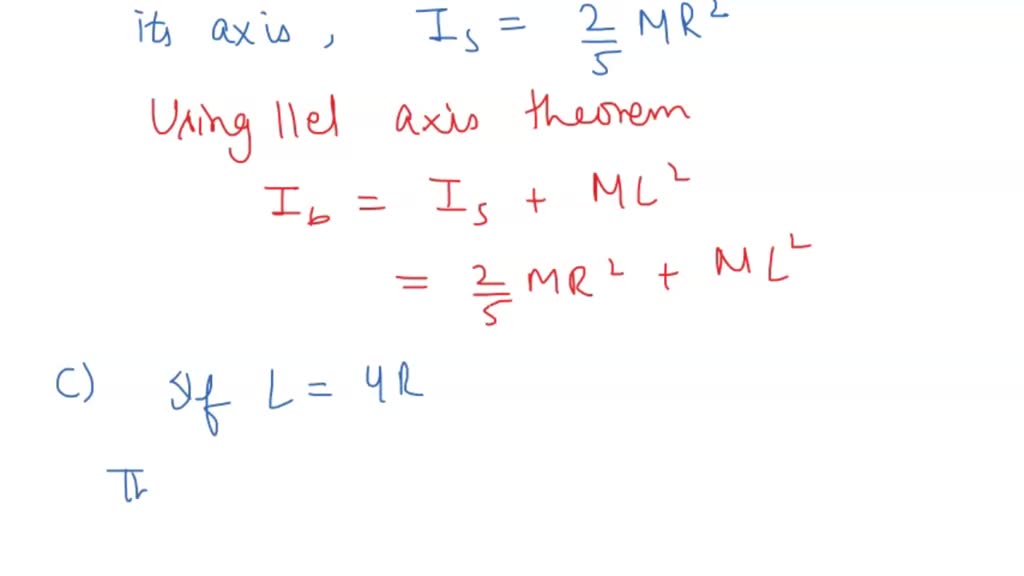 its axis, I_s = 2/5 MR²
Using ||el axis theorem
I_b = I_s + ML²
= 2/5 MR² + ML²
c) If L = 4R
Th